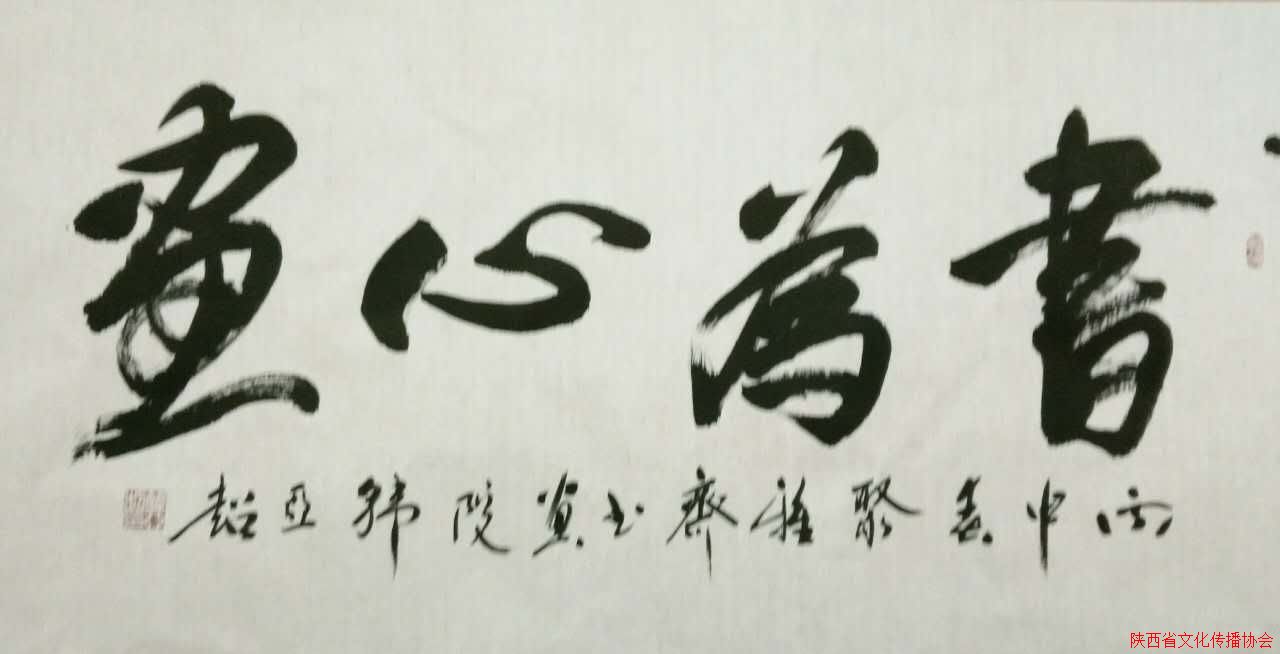 書為心畫
丙申春聚雅齋书畫院韩亞超
陕西省文化传播协会